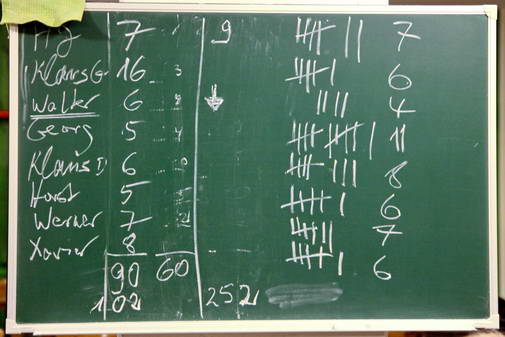 7 9 7
Klaus G. 16 3 6
Walter 6 4
Georg 5 11
Klaus 6 8
Horst 5 6
Werner 7 7
Xavier 8 6
90 60
102 252